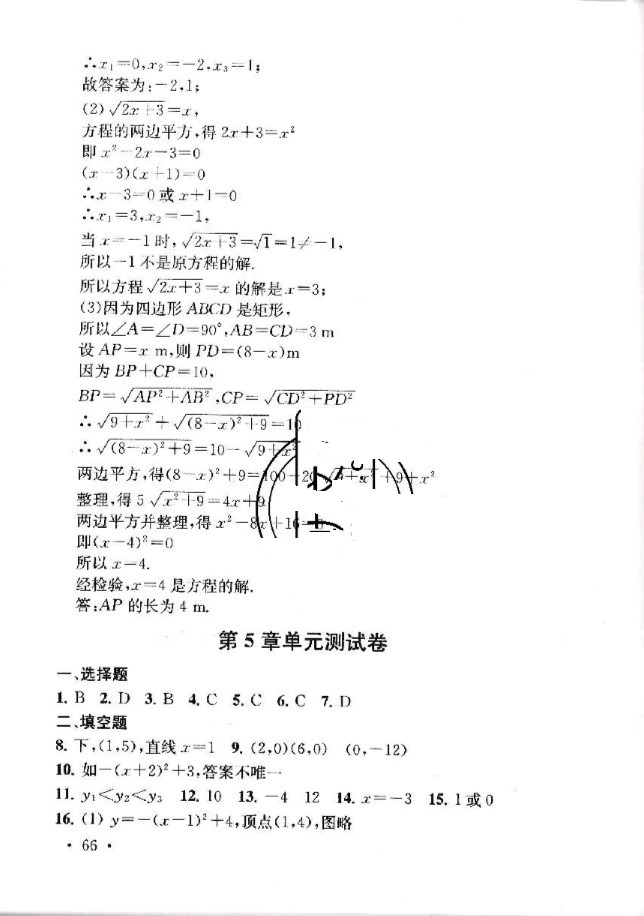 ∴x₁=0,x₂=-2,x₃=1;
故答案为:-2,1;
(2)√(2x+3)=x,
方程的两边平方,得2x+3=x²
即x²-2x-3=0
(x-3)(x+1)=0
∴x-3=0或x+1=0
∴x₁=3,x₂=-1,
当x=-1时,√(2x+3)=√1=1≠-1,
所以-1不是原方程的解.
所以方程√(2x+3)=x的解是x=3;
(3)因为四边形ABCD是矩形,
所以∠A=∠D=90°,AB=CD=3 m
设AP=x m,则PD=(8-x)m
因为BP+CP=10,
BP=√(AP²+AB²),CP=√(CD²+PD²)
∴√(9+x²)+√((8-x)²+9)=10
∴√((8-x)²+9)=10-√(9+x²)
两边平方,得(8-x)²+9=100-20√(9+x²)+9+x²
整理,得5√(x²+9)=4x+9
两边平方并整理,得x²-8x+16=0
即(x-4)²=0
所以x=4.
经检验,x=4是方程的解.
答:AP的长为4 m.
第5章单元测试卷
一、选择题
1. B 2. D 3. B 4. C 5. C 6. C 7. D
二、填空题
8. 下,(1,5),直线x=1 9. (2,0)(6,0) (0,-12)
10. 如-(x+2)²+3,答案不唯一
11. y₁<y₂<y₃ 12. 10 13. -4 12 14. x=-3 15. 1或0
16. (1) y=-(x-1)²+4,顶点(1,4),图略
· 66 ·